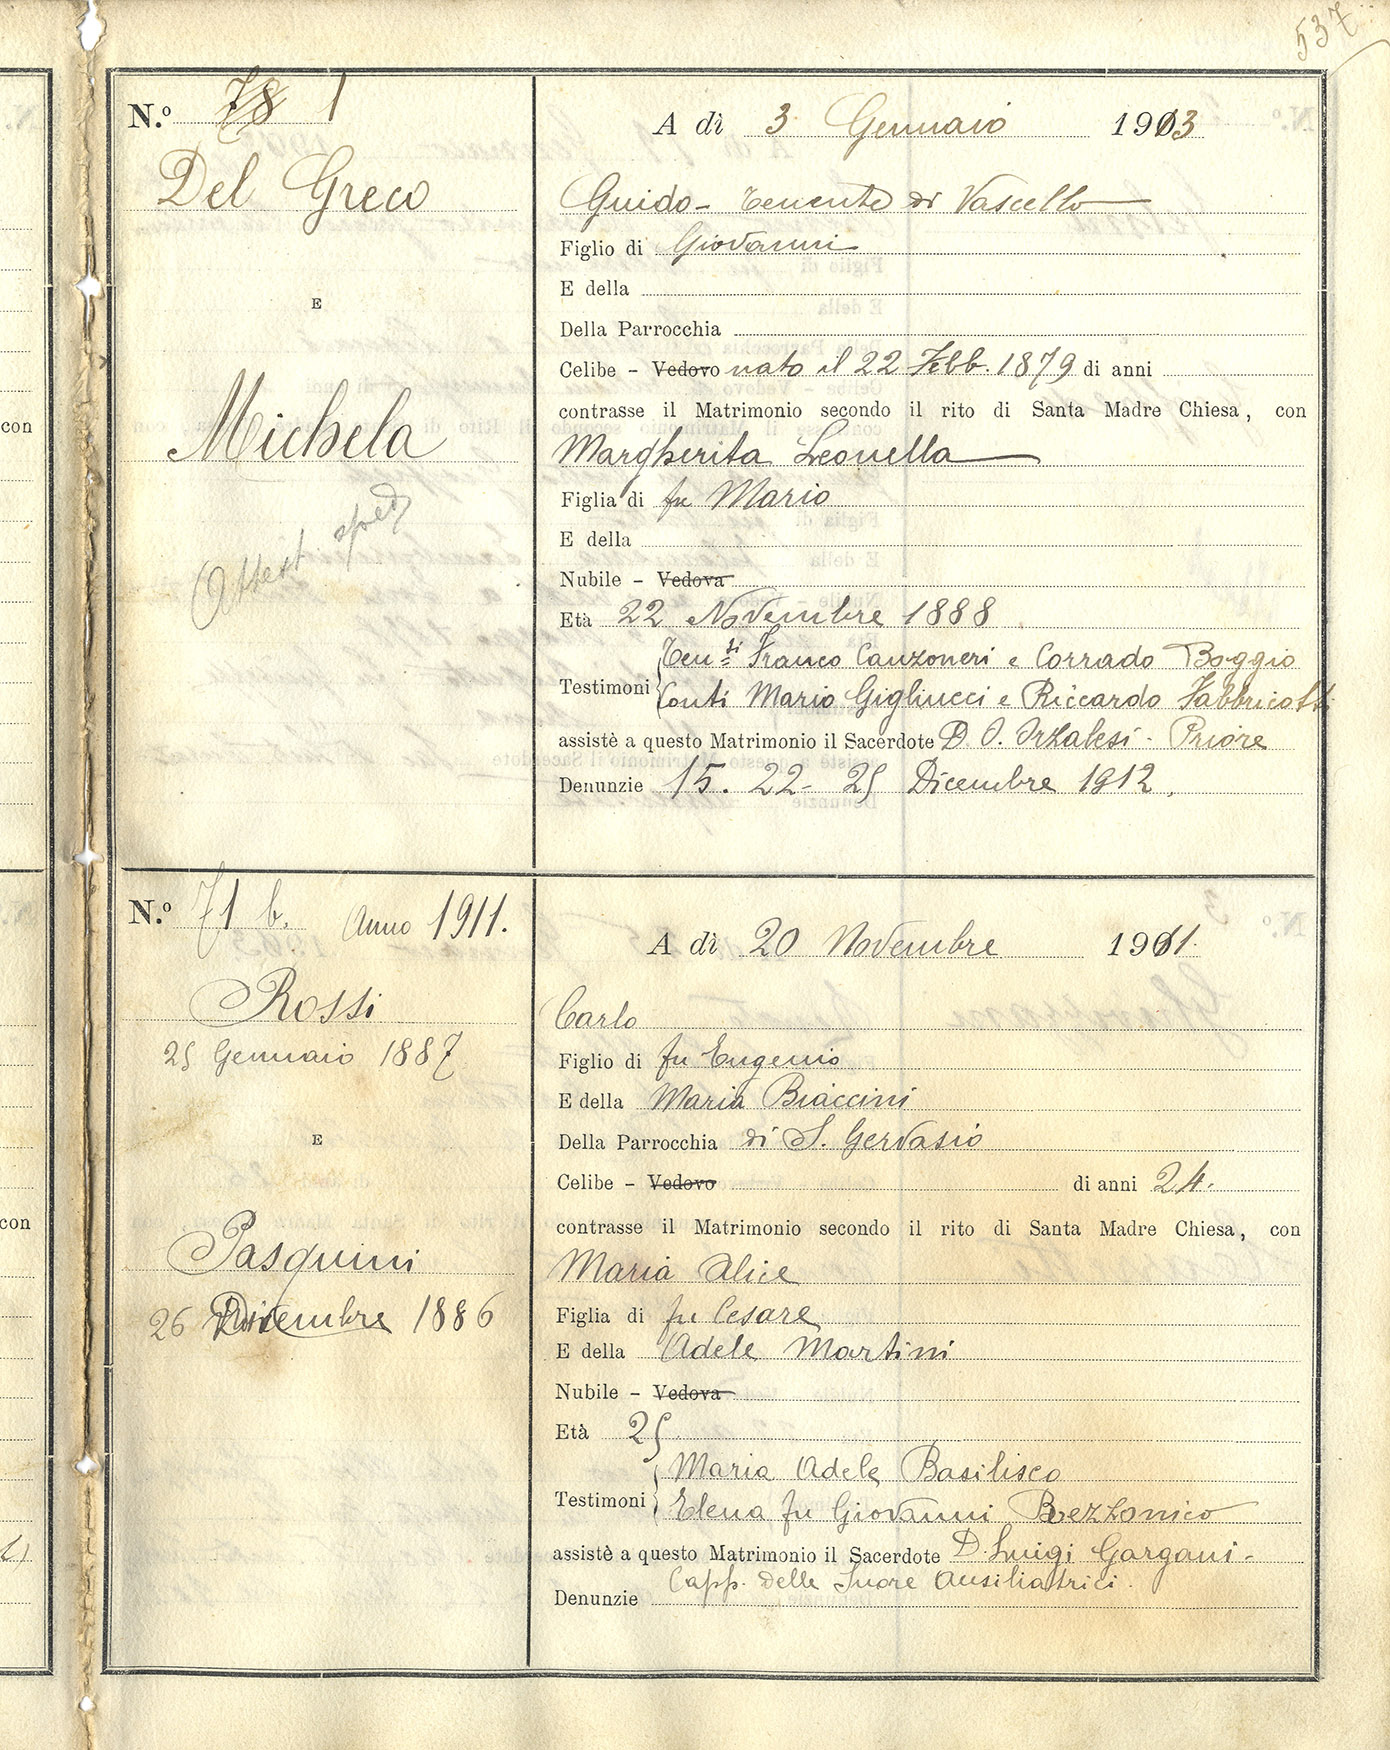 537
N.º 78 1
Del Greco
E
Michela
Attest sped
A dì 3 Gennaio 1913
Guido - Tenente di Vascello
Figlio di Giovanni
E della
Della Parrocchia
Celibe - Vedovo nato il 22 Febb. 1879 di anni
contrasse il Matrimonio secondo il rito di Santa Madre Chiesa, con
Margherita Leonella
Figlia di fu Mario
E della
Nubile - Vedova
Età 22 Novembre 1888
Ten.ti Franco Canzoneri e Corrado Boggio
Testimoni Conti Mario Gigliucci e Riccardo Fabbricotti
assistè a questo Matrimonio il Sacerdote D. Orzalesi - Priore
Denunzie 15. 22 - 25 Dicembre 1912.
N.º 71 b. Anno 1911.
Rossi
25 Gennaio 1887
E
Pasquini
26 Dicembre 1886
A dì 20 Novembre 1911.
Carlo
Figlio di fu Eugenio
E della Maria Biaccini
Della Parrocchia di S. Gervasio
Celibe - Vedovo di anni 24.
contrasse il Matrimonio secondo il rito di Santa Madre Chiesa, con
Maria Alice
Figlia di fu Cesare
E della Adele Martini
Nubile - Vedova
Età 25
Maria Adele Basilisco
Testimoni Elena fu Giovanni Bezzonico
assistè a questo Matrimonio il Sacerdote D. Luigi Gargani -
Capp. delle Suore Ausiliatrici.
Denunzie
con
con